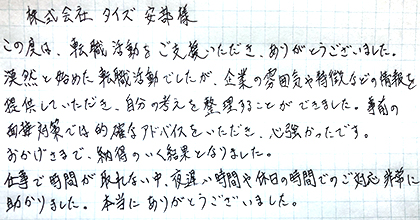 株式会社 タイズ 安藤様
この度は、転職活動をご支援いただき、ありがとうございました。
漠然と始めた転職活動でしたが、企業の雰囲気や特徴などの情報を
提供していただき、自分の考えを整理することができました。事前の
面接対策では的確なアドバイスをいただき、心強かったです。
おかげさまで、納得のいく結果となりました。
仕事で時間が取れない中、夜遅い時間や休日の時間でのご対応非常に
助かりました。本当にありがとうございました。